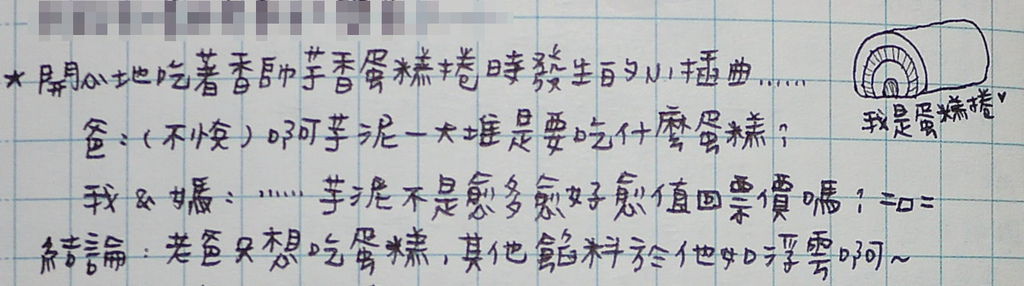 *開心地吃著香帥芋香蛋糕捲時發生的小插曲……
我是蛋糕捲♥
爸:(不快)啊芋泥一大堆是要吃什麼蛋糕?
我&媽:……芋泥不是愈多愈好愈值回票價嗎?=口=
結論:老爸只想吃蛋糕,其他餡料於他如浮雲啊~